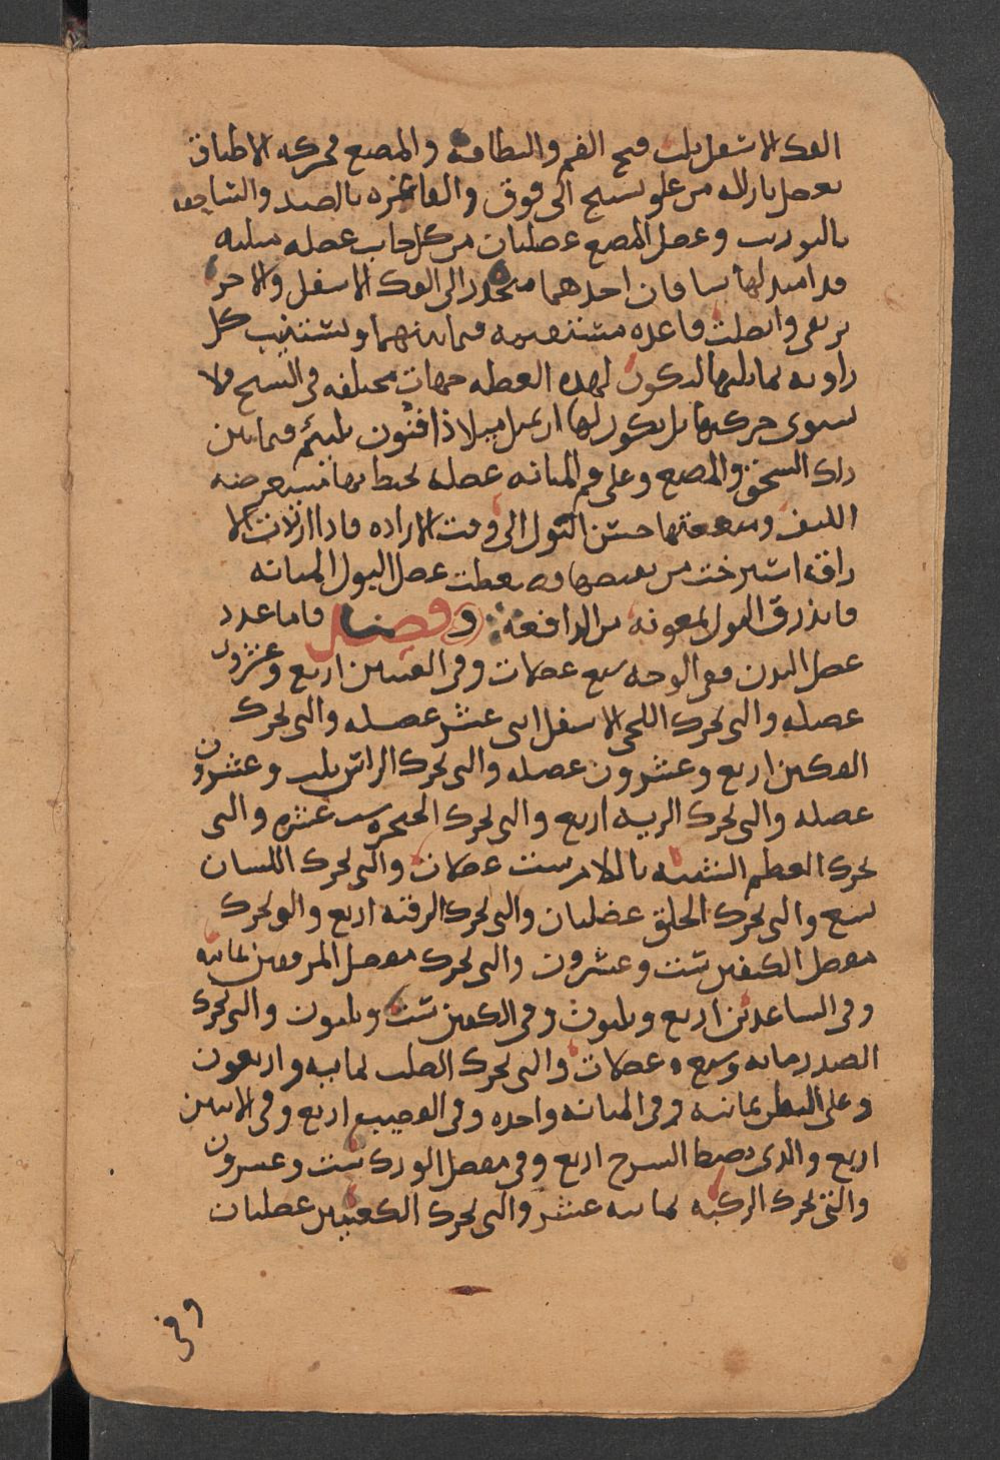 الفك الاسفل ثلث فتح الفم والنطاقه والمضغ فحركه الاطباق
بعضل نازله من علو تشنج الى فوق والفاغره بالضد والساحقه
بالتوريب وعضل المضغ عضلتان من كل جانب عضله مثلثه
قد امتد لها ساقان احدهما منحدر الى الفك الاسفل والاخر
يرتقى واتصلت قاعده مستقيمه فيما بينهما وتشبثت كل
زاويه بما يليها ليكون لهذه العضله جهات مختلفه فى التشنج فلا
تستوى حركتها بل يكون لها ان تميل ميلا ذا فنون يلتئم فيما بين
ذلك السحق والمضغ وعلى فم المثانه عضله تحيط بها مستعرضه
الليف ومنفعتها حبس البول الى وقت الاراده فاذا ارادت الا
راقه استرخت من تقبضها فضغطت عضل البول المثانه
فانذرق البول بمعونه من الدافعه فصل فاما عدد
عضل البدن ففى الوجه سبع عضلات وفى العينين اربع وعشرون
عضله والتى تحرك اللحى الاسفل اثنى عشر عضله والتى تحرك
الفكين اربع وعشرون عضله والتى تحرك الراس ثلث وعشرون
عضله والتى تحرك الريه اربع والتى تحرك الحنجره ست عشره والتى
تحرك العظم الشبيه باللام ست عضلات والتى تحرك اللسان
تسع والتى تحرك الحلق عضلتان والتى تحرك الرقبه اربع والتى تحرك
مفصل الكتفين ست وعشرون والتى تحرك مفصل المرفقين ثمانيه
وفى الساعدين اربع وثلثون وفى الكفين ست وثلثون والتى تحرك
الصدر مائه وسبع عضلات والتى تحرك الصلب ثمانيه واربعون
وعلى البطن ثمانيه وفى المثانه واحده وفى القضيب اربع وفى الانثيين
اربع والذى يضبط السرج اربع وفى مفصل الورك ست وعشرون
والتى تحرك الركبه ثمانيه عشر والتى تحرك الكعبين عضلتان
وفى